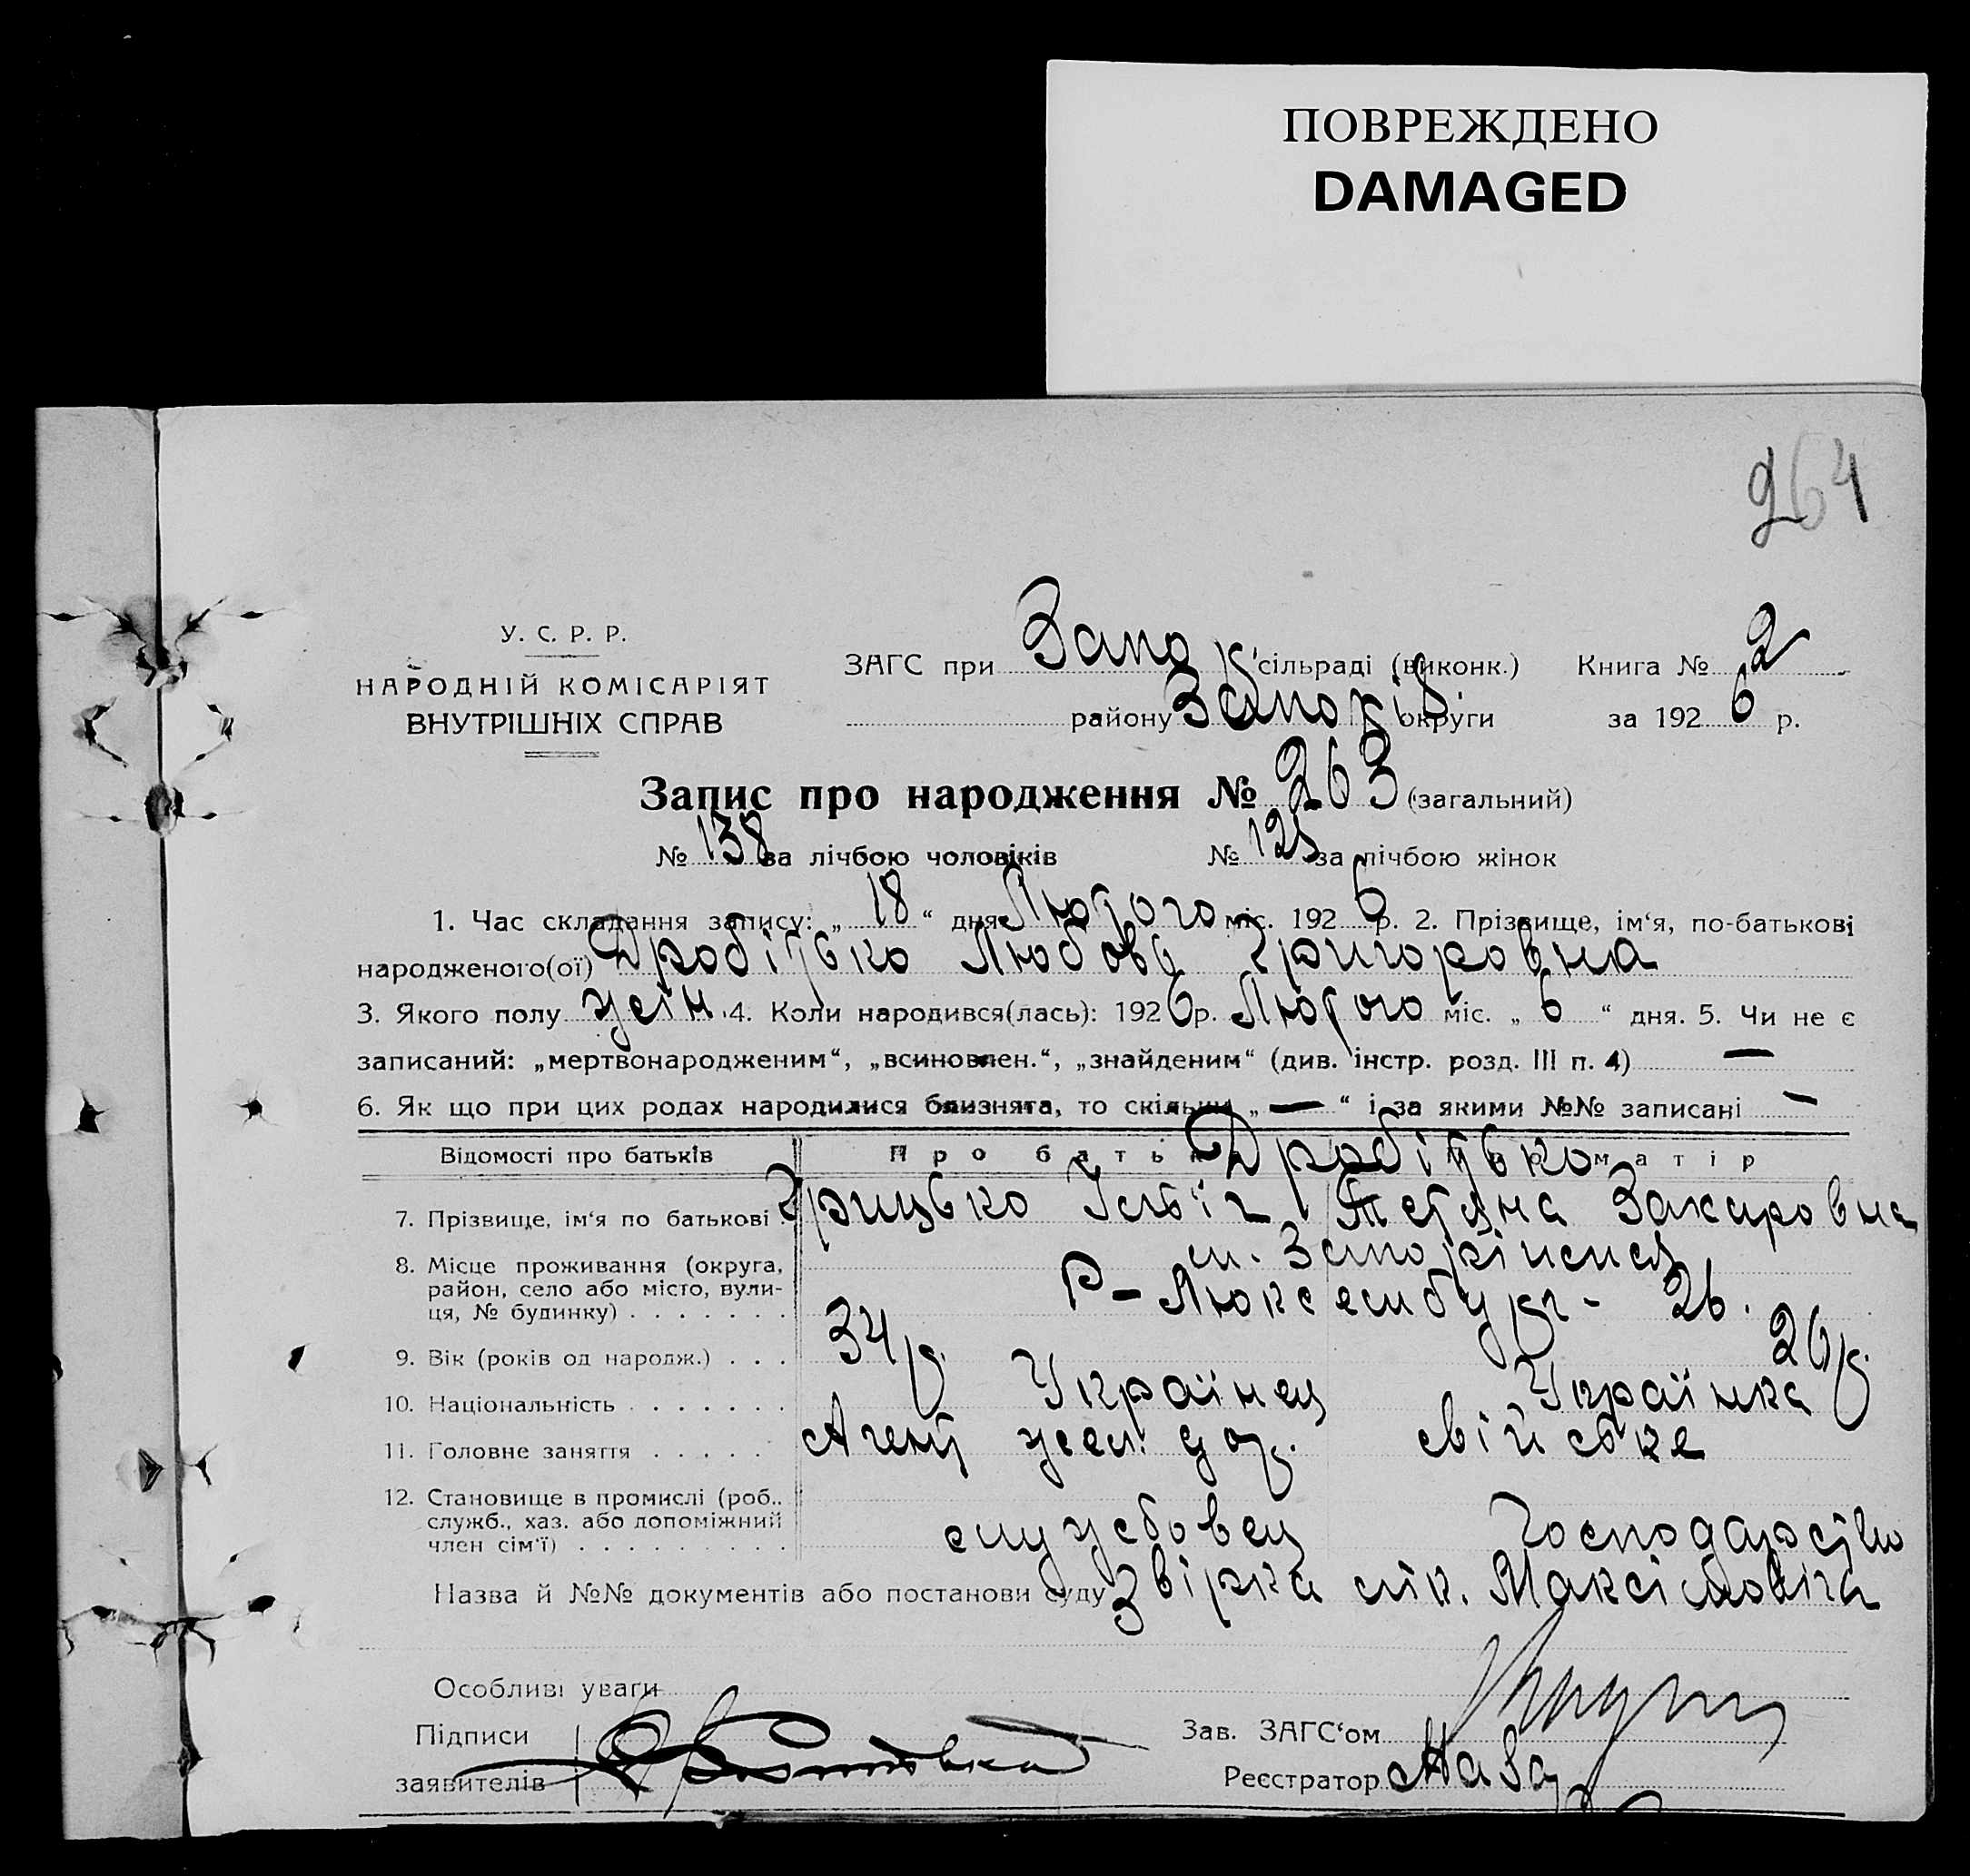 ПОВРЕЖДЕНО
DAMAGED
264
У. С. Р. Р.
НАРОДНІЙ КОМІСАРІЯТ
ВНУТРІШНІХ СПРАВ
ЗАГС при Запо сільраді (виконк.) Книга № 2
району Запоріз. округи за 1926 р.
Запис про народження № 263 (загальний)
№ 138 за лічбою чоловіків № 125 за лічбою жінок
1. Час складання запису: „ 18 “ дня Лютого міс. 1926 р. 2. Прізвище, ім‘я, по-батькові
народженого(ої) Дробітько Любовь Григоровна
3. Якого полу жін. 4. Коли народився(лась): 1926 р. Лютого міс. „ 6 “ дня. 5. Чи не є
записаний: „мертвонародженим“, „всиновлен.“, „знайденим“ (див. інстр. розд. III п. 4) —
6. Як що при цих родах народилися близнята, то скільки „ — “ і за якими №№ записані —
Відомості про батьків Про батька Дробітько матір
7. Прізвище, ім‘я по батькові Грицько Тетяна Захаровна
8. Місце проживання (округа, м. Запоріжжя
район, село або місто, вули- Р-Люксембург - 26.
ця, № будинку)
9. Вік (років од народж.) 34 р. 26 р.
10. Національність Українец Українка
11. Головне заняття Агент жел. дор. свійське
12. Становище в промислі (роб.,
служб., хаз. або допоміжний службовец Господарство
член сім‘ї)
Назва й №№ документів або постанови суду Звірка лік. Максімовіча
Особливі уваги
Підписи Зав. ЗАГС‘ом
заявителів Реєстратор